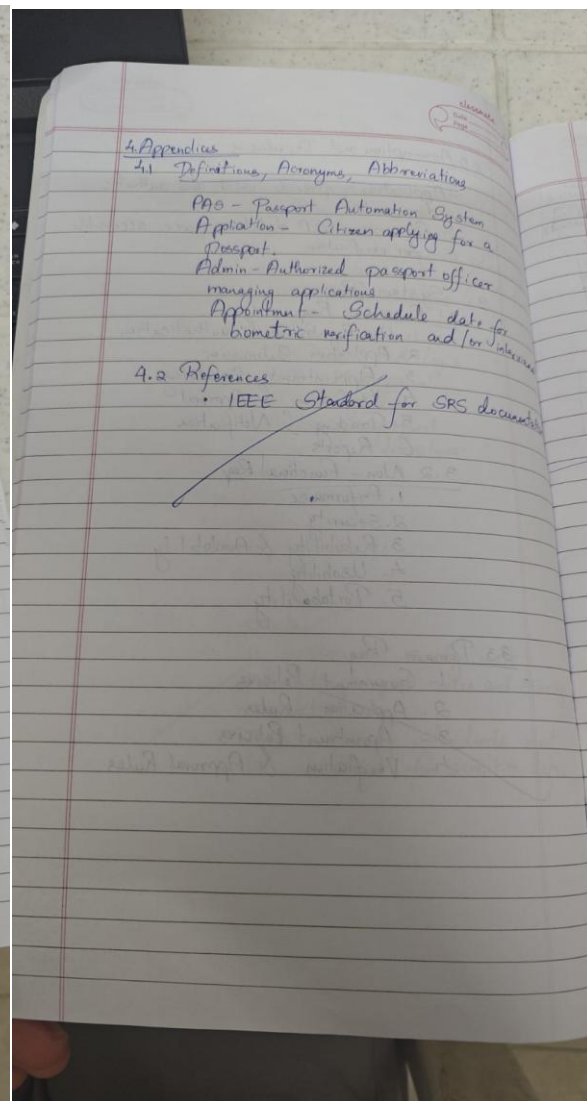 classmate
Date
Page
4. Appendices
4.1 Definitions, Acronyms, Abbreviations
PAS - Passport Automation System
Appliation - Citizen applying for a
Passport.
Admin - Authorized passport officer
managing applications
Appointment - Schedule date for
biometric verification and/or interview
4.2 References
• IEEE Standard for SRS documentation